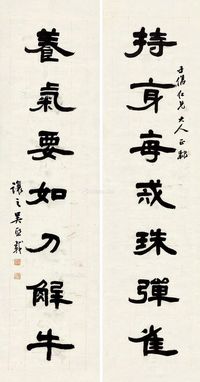 仁兄大人正
持身每戒珠彈雀
養氣要如刀解牛
讓之吳熙載